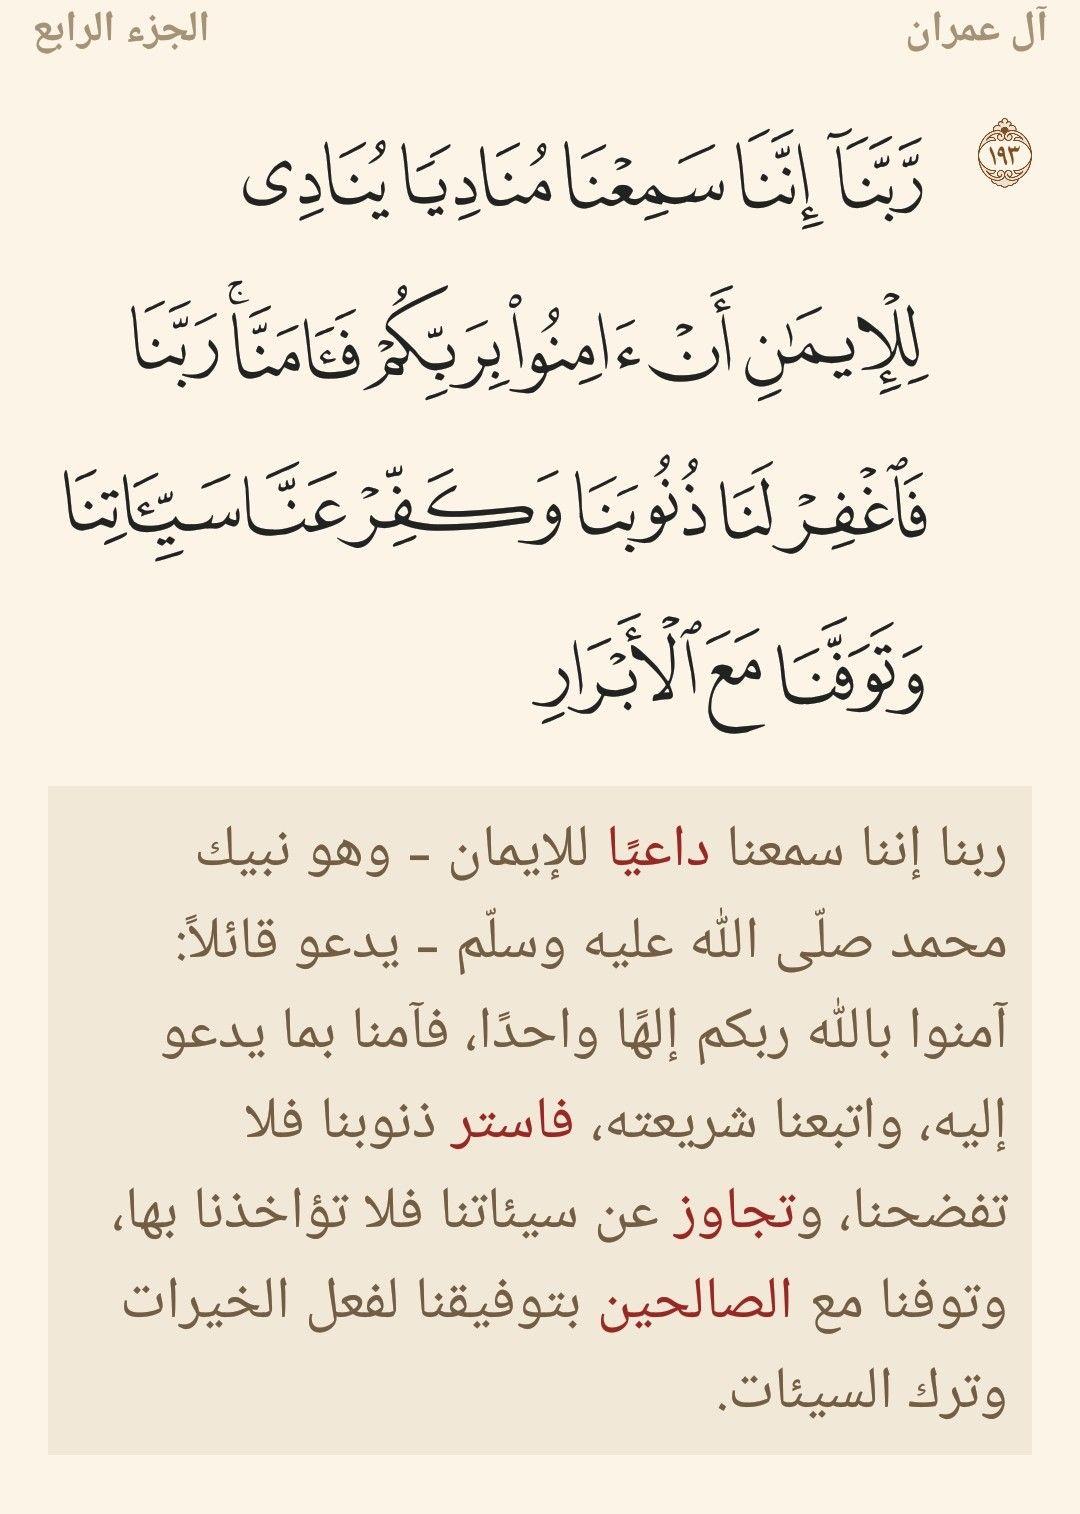 آل عمران
الجزء الرابع
١٩٣
رَّبَّنَآ إِنَّنَا سَمِعْنَا مُنَادِيًا يُنَادِى
لِلْإِيمَٰنِ أَنْ ءَامِنُوا۟ بِرَبِّكُمْ فَـَٔامَنَّا ۚ رَبَّنَا
فَٱغْفِرْ لَنَا ذُنُوبَنَا وَكَفِّرْ عَنَّا سَيِّـَٔاتِنَا
وَتَوَفَّنَا مَعَ ٱلْأَبْرَارِ
ربنا إننا سمعنا داعيًا للإيمان - وهو نبيك
محمد صلّى الله عليه وسلّم - يدعو قائلاً:
آمنوا بالله ربكم إلهًا واحدًا، فآمنا بما يدعو
إليه، واتبعنا شريعته، فاستر ذنوبنا فلا
تفضحنا، وتجاوز عن سيئاتنا فلا تؤاخذنا بها،
وتوفنا مع الصالحين بتوفيقنا لفعل الخيرات
وترك السيئات.